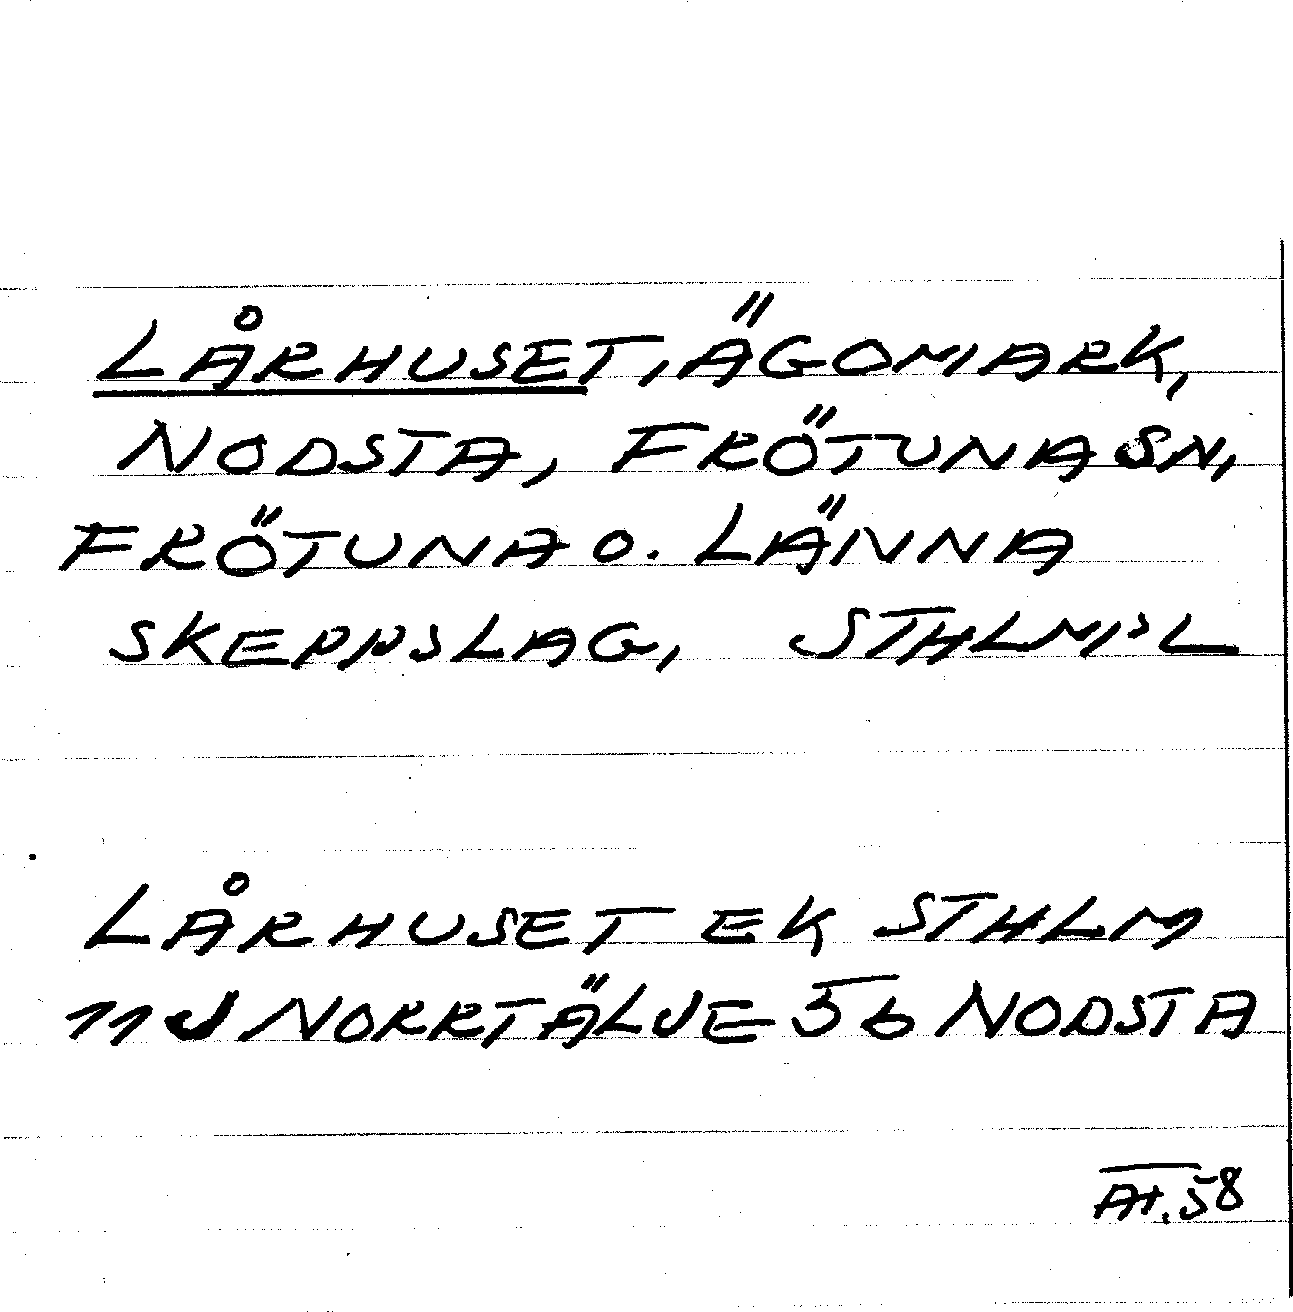 LÅRHUSET, ÄGOMARK,
NODSTA, FRÖTUNA SN,
FRÖTUNA O. LÄNNA
SKEPPSLAG, STHLM'S L
LÅRHUSET EK STHLM
11J NORRTÄLJE 5b NODSTA
58